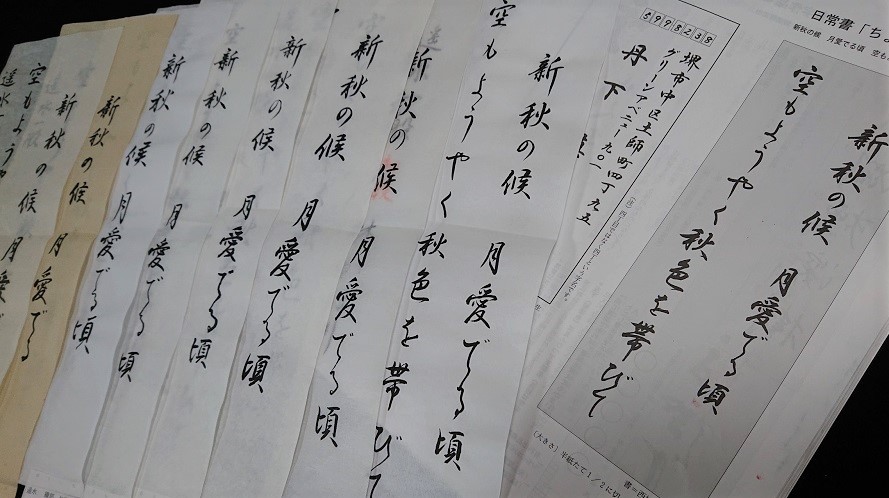 日常書「ち
新秋の候 月愛でる頃 空も
新秋の候 月愛でる頃
空もようやく秋色を帯びて
(大きさ)半紙たて1/2に切
5998238
堺市中区土師町四丁九五
グリーンアベニュー九〇一
丹下
新秋の候 月愛でる頃
空もようやく秋色を帯びて
新秋の候 月愛でる頃
新秋の候 月愛でる頃
新秋の候 月愛でる頃
新秋の候 月愛でる頃
新秋の候 月愛でる頃
新秋の候 月愛でる
新秋の候 月愛
空もようや